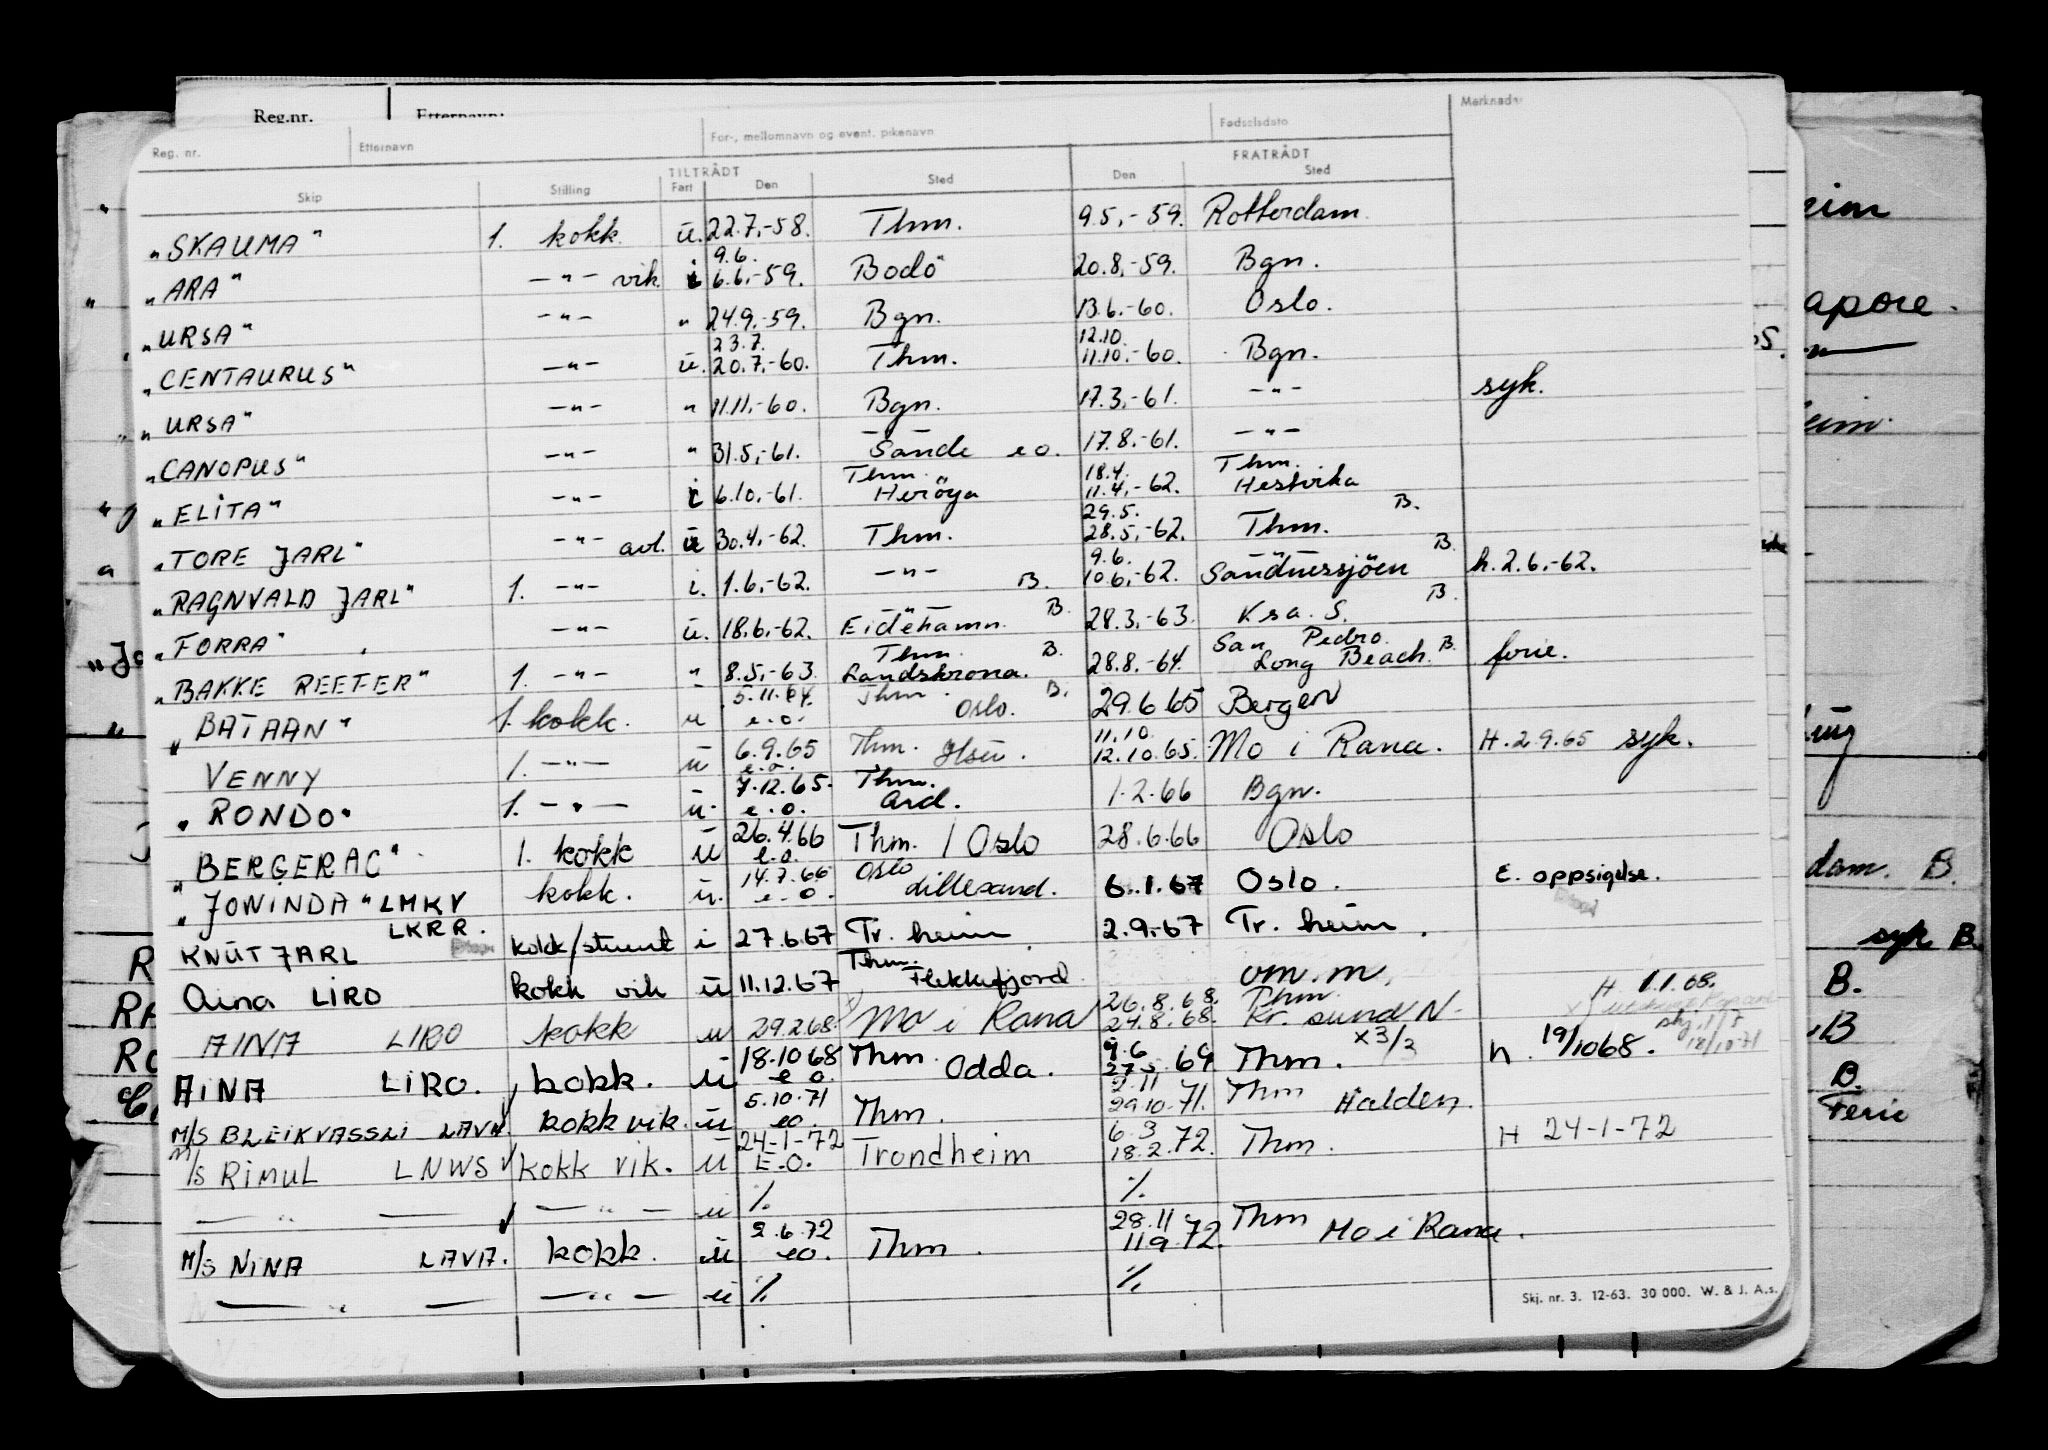 Reg.nr. Etternavn:
Reg. nr. Etternavn For-, mellomnavn og event. pikenavn Fødselsdato Merknader
TILTRÅDT FRATRÅDT
Skip Stilling Fart Den Sted Den Sted
"SKAUMA" 1. kokk. u. 22.7.-58. Thm. 9.5.-59. Rotterdam.
9.6.
"ARA" -"- vik. i 6.6.-59. Bodö 20.8.-59. Bgn.
"URSA" -"- " 24.9.-59. Bgn. 13.6.-60. Oslo.
23.7. 12.10.
"CENTAURUS" -"- u. 20.7.-60. Thm. 11.10.-60. Bgn.
"URSA" -"- " 11.11.-60. Bgn. 17.3.-61. -"- syk.
"CANOPUS" -"- " 31.5.-61. Sande e o. 17.8.-61. -"-
Thm. 18.4. Thm.
"ELITA" -"- i 6.10.-61. Heröya 11.4.-62. Hestvika B.
29.5.
"TORE JARL" -"- avl. u 30.4.-62. Thm. 28.5.-62. Thm. B.
9.6.
"RAGNVALD JARL" 1. -"- i. 1.6.-62. -"- B. 10.6.-62. Sandnessjöen B. h. 2.6.-62.
"FORRA" -"- u. 18.6.-62. Eidehamn. B. 28.3.-63. Ksa. S.
Thm. B. San Pedro.
"BAKKE REEFER" 1. -"- " 8.5.-63. Landskrona. 28.8.-64. Long Beach. B. ferie.
5.11.64. Thm. B.
"BATAAN" 1. kokk. u e.o. Oslo. 29.6 65 Bergen
6.9.65 Thm. 11.10.
VENNY 1. -"- u e.o. 12.10.65. Mo i Rana. H. 2.9.65 syk.
7.12.65. Thm.
"RONDO" 1. -"- u. e.o. Ard. 1.2.66 Bgn.
26.4.66
"BERGERAC" 1. kokk u e.o. Thm. / Oslo 28.6.66 Oslo
14.7.66 Oslo
"JOWINDA" LMKV kokk. u. e.o. Lillesand. 6.1.67 Oslo. E. oppsigelse.
LKRR.
KNUT JARL kokk/stuert i 27.6.67 Tr. heim 2.9.67 Tr. heim.
Thm.
Aina LIRO kokk vik u 11.12.67 Flekkefjord om.m. H. 1.1.68.
26.8.68. Thm.
AINA LIRO kokk u 29.2.68. Mo i Rana 24.8.68. Kr. sund N.
18.10 68 Thm. 9.6 x3/3
AINA LIRO. kokk. u e o. Odda. 27.5. 69 Thm. h. 19/10 68.
5.10.71 2.11 Thm 18/10-71
M/S BLEIKVASSLI kokk vik. u eo. Thm. 29.10.71. Halden.
24-1-72 6.3
M/S RIMUL LNWS kokk vik. u E.O. Trondheim 18.2.72. Thm. H 24-1-72
— " — — " — u % %
2.6.72 28.11 Thm
M/S NINA LAVA. kokk. u eo. Thm. 11.9.72. Mo i Rana.
— " — — " — u % %
Skj. nr. 3. 12-63. 30 000. W. & J. A.s.
apore.
dam. B.
syk B.
B.
B
B.
Ferie